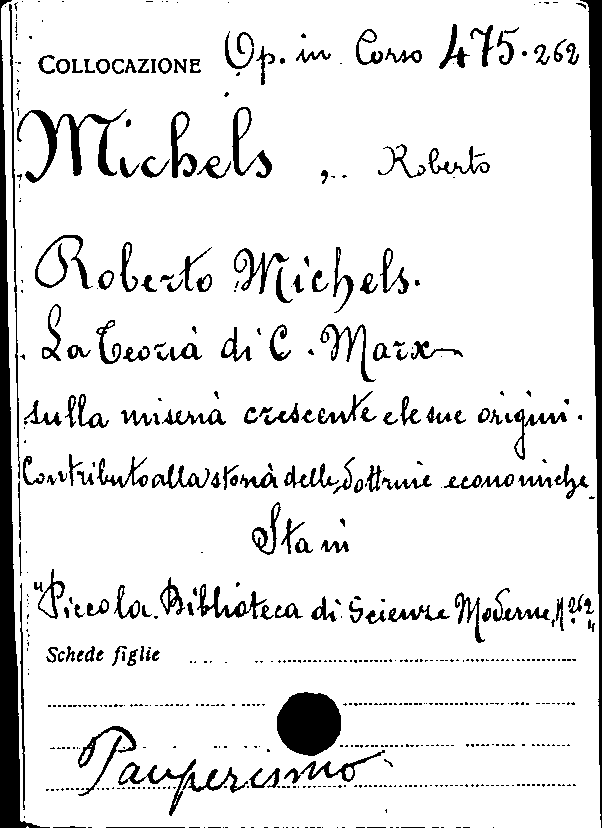 COLLOCAZIONE Op. in Corso 475.262
Michels, Roberto
Roberto Michels.
La Teoria di C. Marx
sulla miseria crescente e le sue origini.
Contributo alla storia delle dottrine economiche
Sta in
"Piccola Biblioteca di Scienze Moderne, N. 262"
Schede figlie
Pauperismo